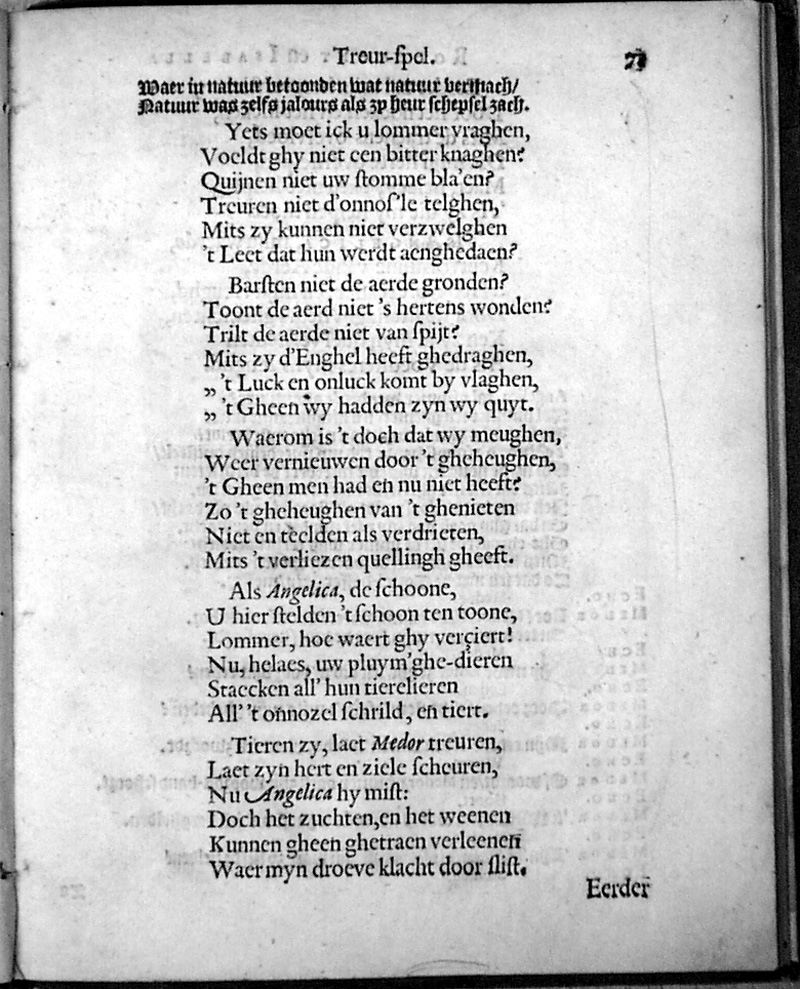 Treur-ſpel.
Waer in natuur betoonden wat natuur vermach/
Natuur was zelfs jalours als zy heur ſchepſel zach.
Yets moet ick u lommer vraghen,
Voeldt ghy niet een bitter knaghen?
Quijnen niet uw ſtomme bla'en?
Treuren niet d'onnoſ'le telghen,
Mits zy kunnen niet verzwelghen
't Leet dat hun werdt aenghedaen?
Barſten niet de aerde gronden?
Toont de aerd niet 's hertens wonden?
Trilt de aerde niet van ſpijt?
Mits zy d'Enghel heeft ghedraghen,
„ 't Luck en onluck komt by vlaghen,
„ 't Gheen wy hadden zyn wy quyt.
Waerom is 't doch dat wy meughen,
Weer vernieuwen door 't gheheughen,
't Gheen men had en̄ nu niet heeft?
Zo 't gheheughen van 't ghenieten
Niet en teelden als verdrieten,
Mits 't verliezen quellingh gheeft.
Als Angelica, de ſchoone,
U hier ſtelden 't ſchoon ten toone,
Lommer, hoe waert ghy verçiert!
Nu, helaes, uw pluym'ghe-dieren
Staecken all' hun tierelieren
All' 't onnozel ſchrild, en̄ tiert.
Tieren zy, laet Medor treuren,
Laet zyn hert en ziele ſcheuren,
Nu Angelica hy miſt:
Doch het zuchten, en het weenen
Kunnen gheen ghetraen verleenen
Waer myn droeve klacht door ſliſt.
Eerder